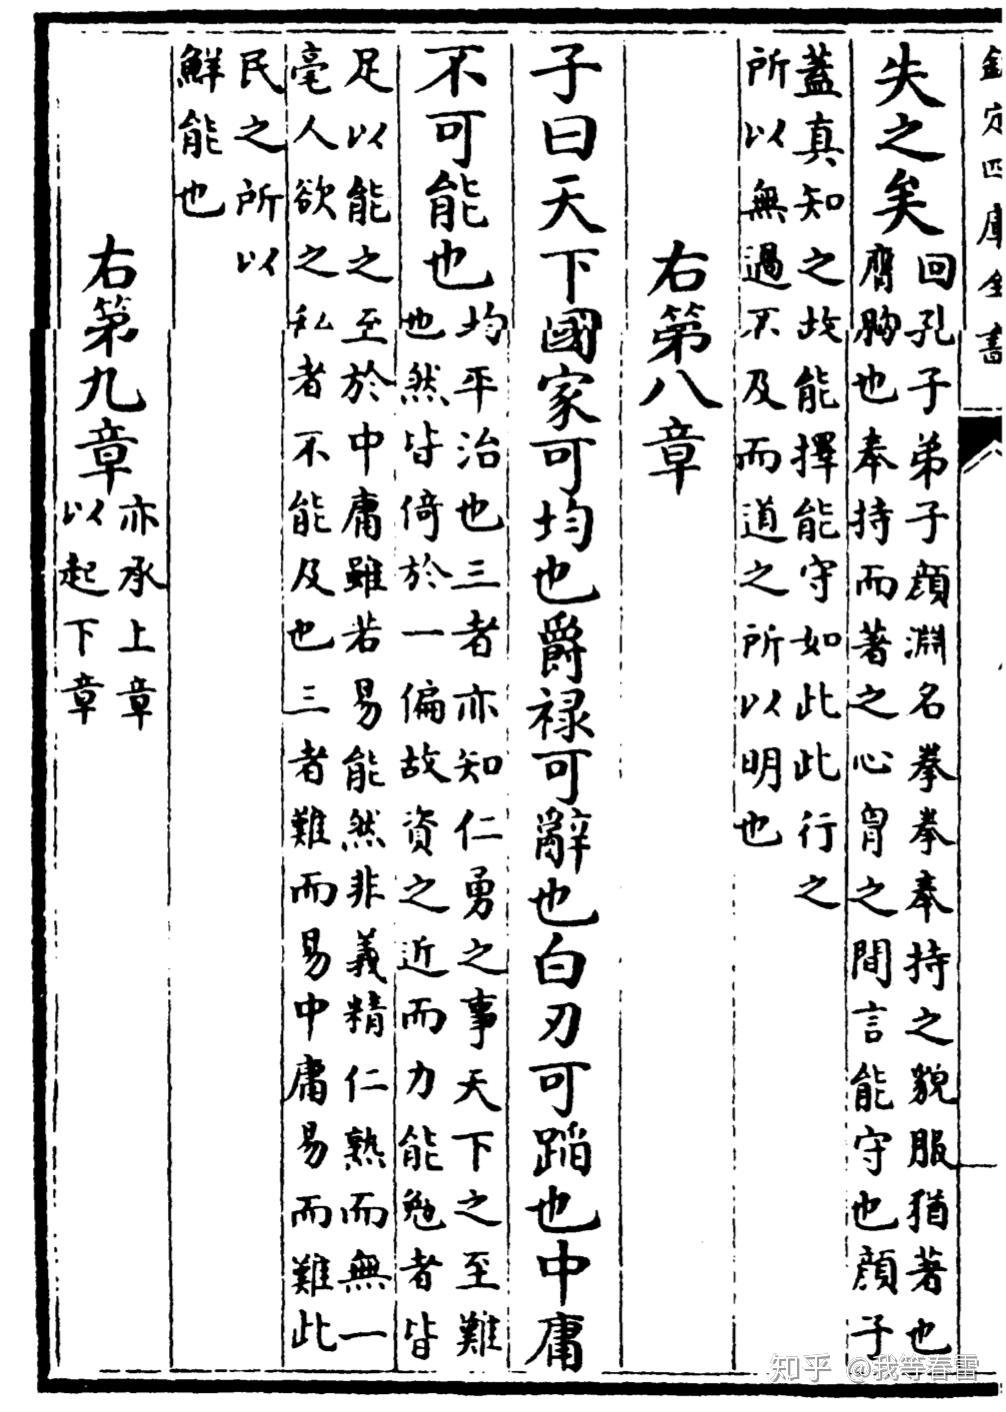 欽定四庫全書
失之矣回孔子弟子顔淵名拳拳奉持之貌服猶著也
膺胸也奉持而著之心胷之間言能守也顔子
蓋真知之故能擇能守如此此行之
所以無過不及而道之所以明也
右第八章
子曰天下國家可均也爵禄可辭也白刃可蹈也中庸
不可能也均平治也三者亦知仁勇之事天下之至難
也然皆倚於一偏故資之近而力能勉者皆
足以能之至於中庸雖若易能然非義精仁熟而無一
毫人欲之私者不能及也三者難而易中庸易而難此
民之所以
鮮能也
右第九章亦承上章
以起下章
知乎 @我等春雷